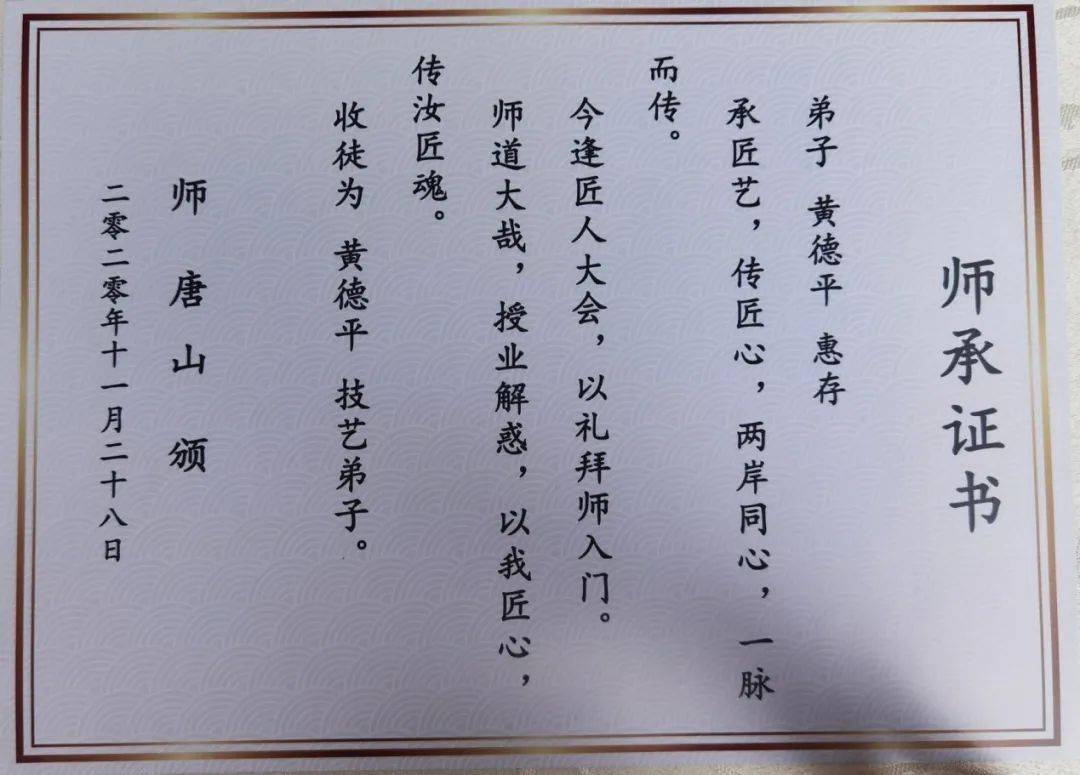 师承证书
弟子 黄德平 惠存
承匠艺，传匠心，两岸同心，一脉
而传。
今逢匠人大会，以礼拜师入门。
师道大哉，授业解惑，以我匠心，
传汝匠魂。
收徒为 黄德平 技艺弟子。
师 唐山 颁
二零二零年十一月二十八日